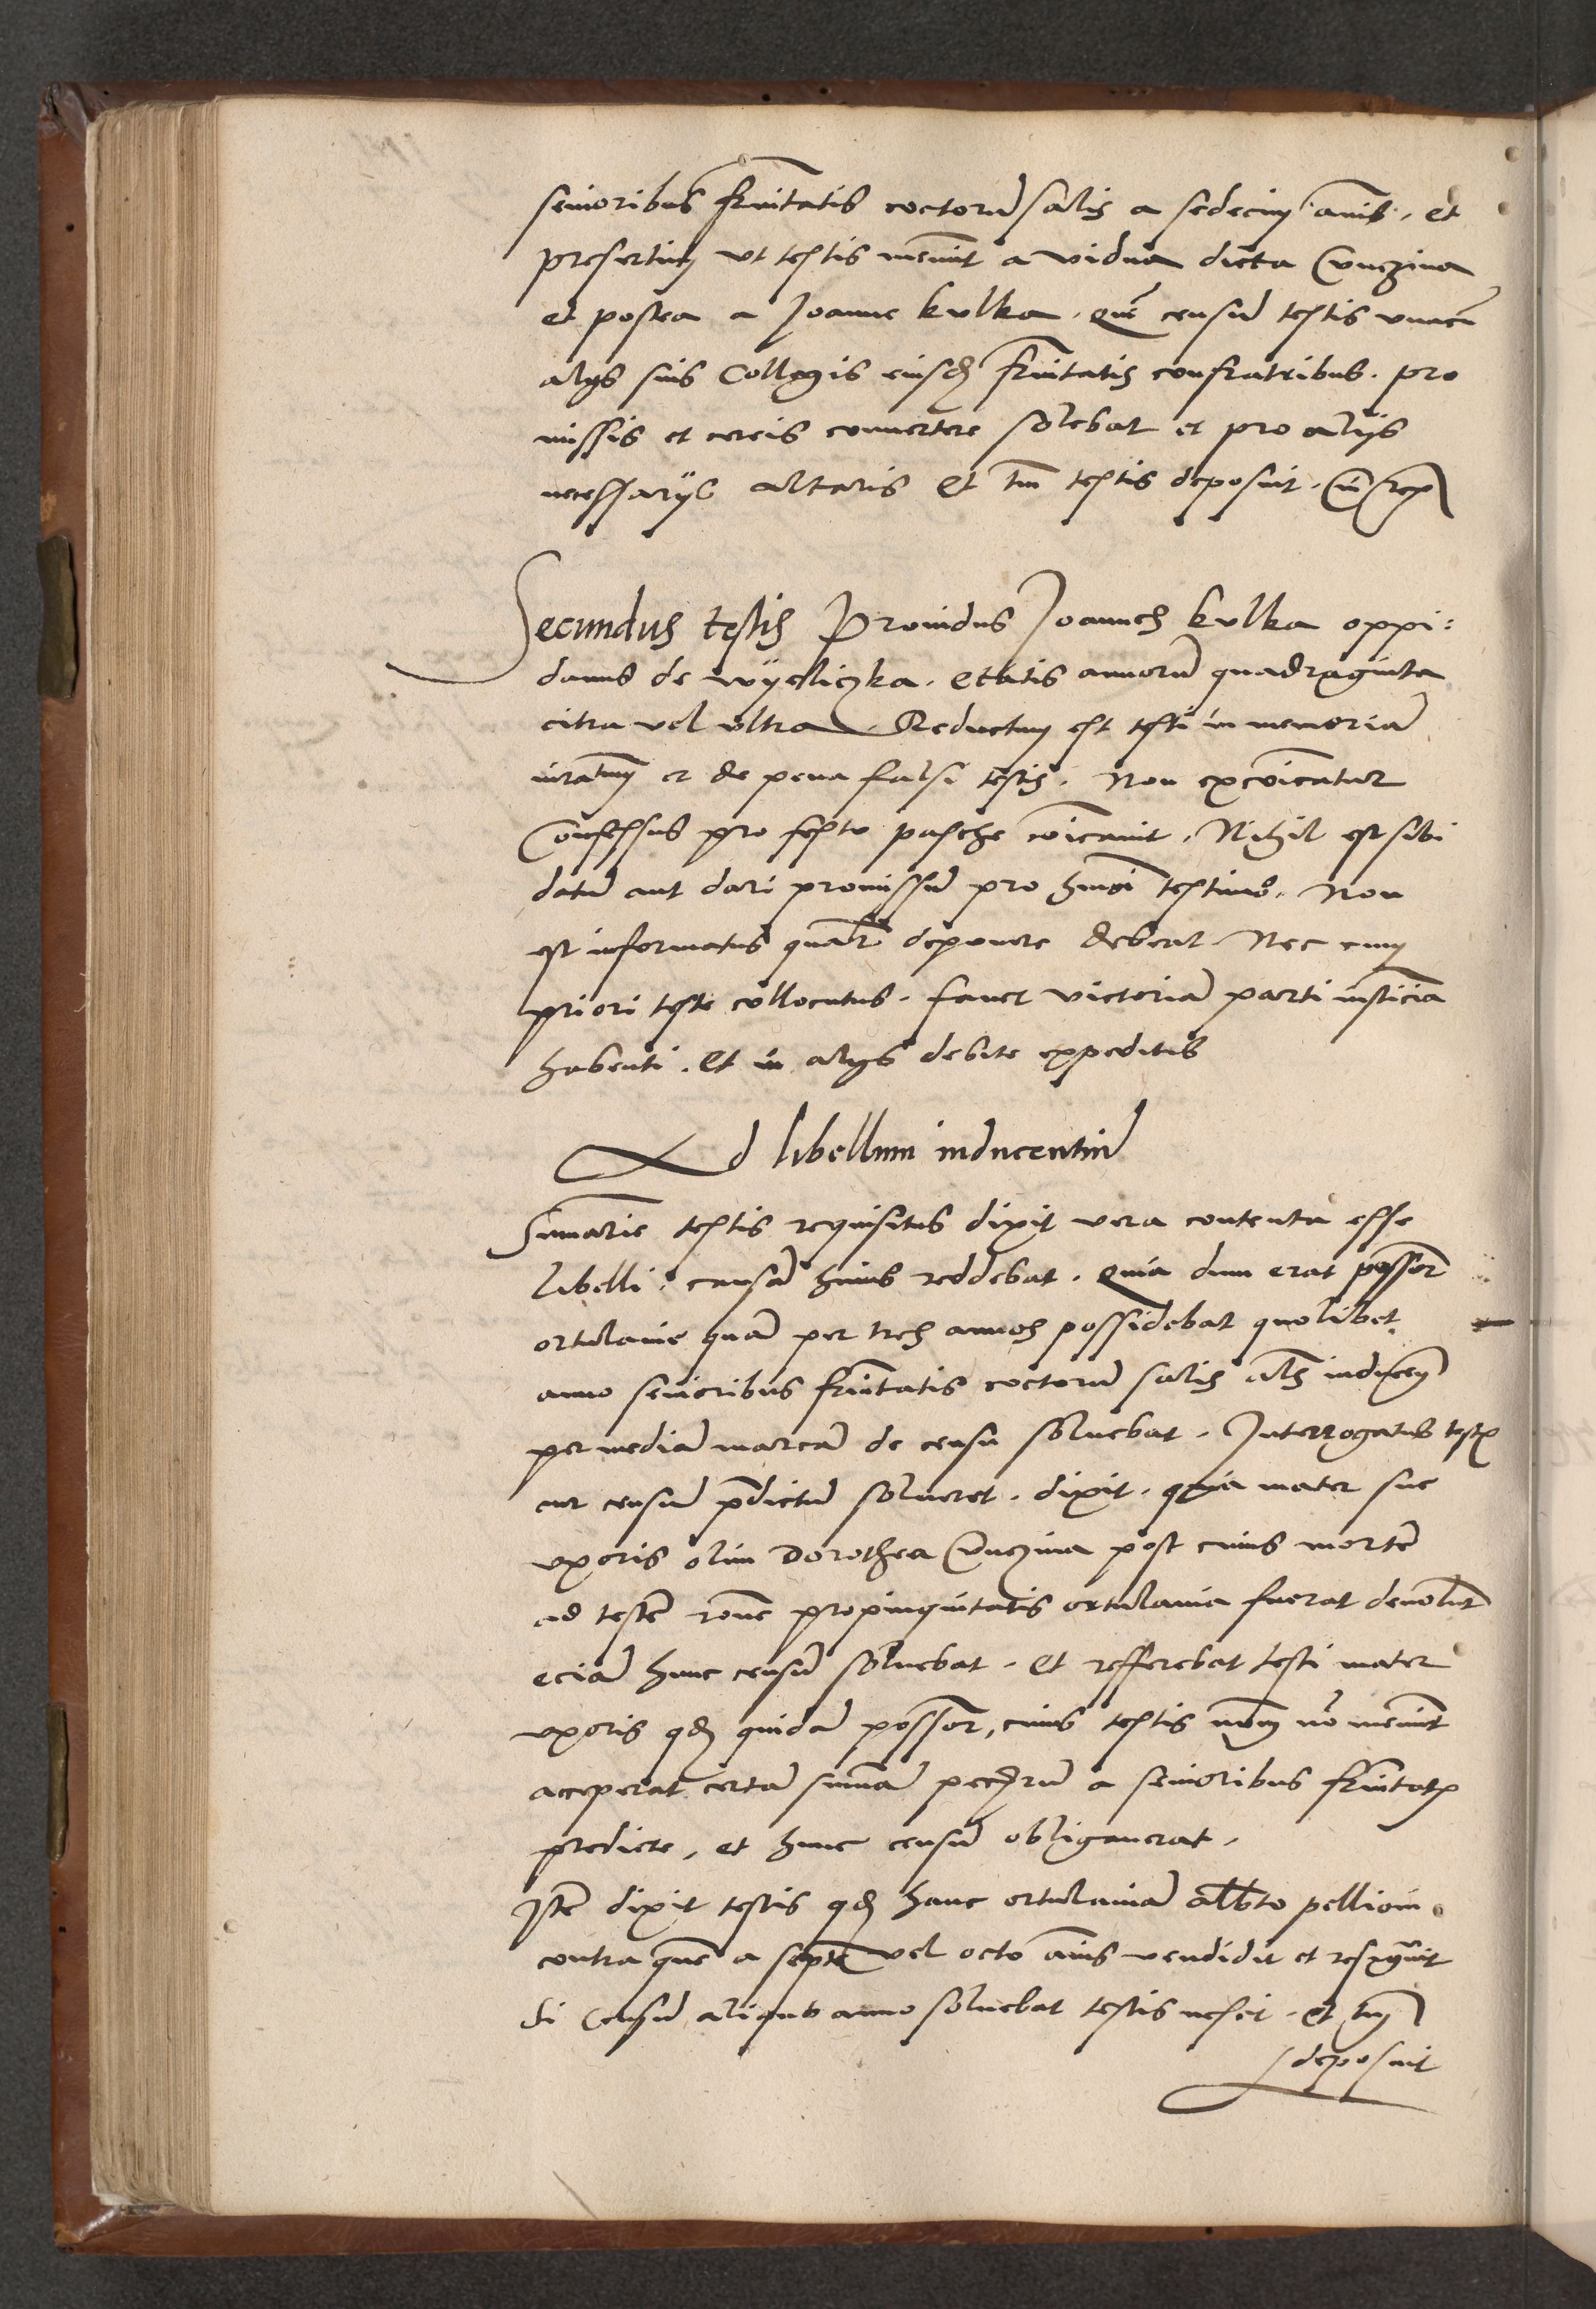 senioribus frnitatis coctorum salis a sedecim annis. et
presertim ut testis meminit a vidua dicta Cunczina
et postea a Joanne kulka. quem censum testis unacum
alijs suis Collegis eiusdem frnitatis confratribus. pro
missis et cereis convertere solebat et pro alijs
necessarijs altaris et tm testis deposuit.
Secundus testis Providus Joannes kulka oppi:
danus de wyeliczka. etatis annorum quadraginta
citra vel ultra. Reductum est testi in memoriam
iuratum et de pena falsi testis. Non excoicatur
Confessus pro festo pasche coicavit. Nihil est sibi
datum aut dari promissum pro hmoi testimo. Non
est informatus qualr deponere debeat. Nec cum
priori teste collocutus. favet victoriam parti iusticiam
habenti. Et in alijs debite expeditis
Ad libellum inducentium
Summarie testis requisitus dixit vera contenta esse
libelli. causam huius reddebat. Quia dum erat possor
ortulanie quam per tres annos possidebat quolibet
anno senioribus frnitatis coctorum salis als inducen
per mediam marcam de censu solvebat. Interrogatus testis
cur censum pdictum solveret. dixit. quia mater sue
uxoris olim Dorothea Cunczina post cuius mortem
ad testem rone propinquitatis ortulania fuerat devoluta
eciam hunc censum solvebat. et refferebat testi mater
uxoris qd quidam possor, cuius testis nomen non meminit
acceperat certam summam pecuniarum a senioribus frnitatis
predicte, et hunc censum obligaverat.
Item dixit testis qd hanc ortulaniam albto pellioni
contra quem a septem vel octo annis vendidit et resignavit
Si censum aliquo anno solvebat testis nescit. et tm
deposuit